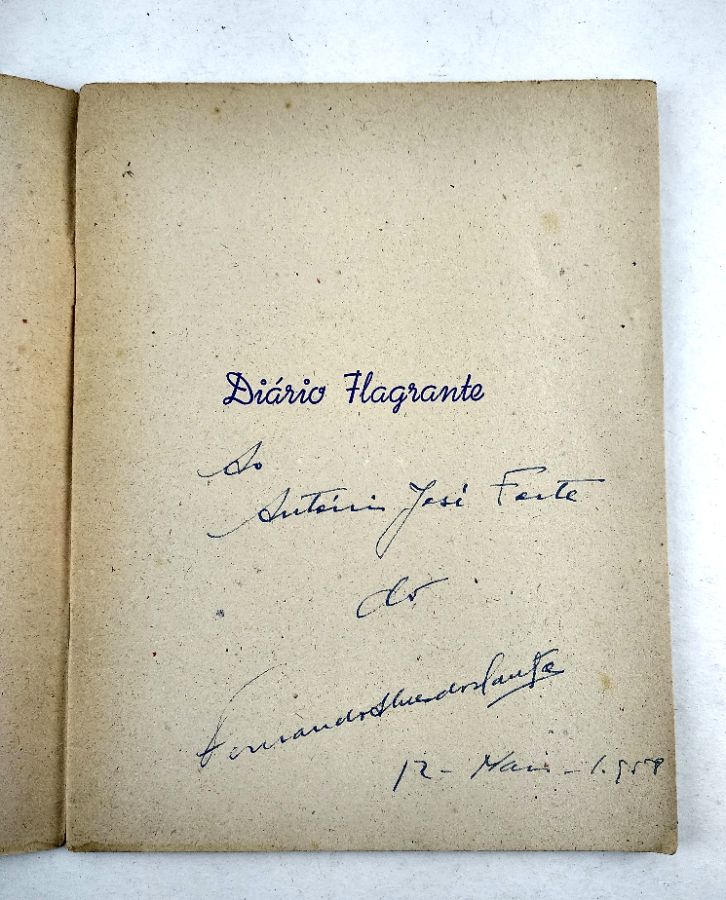 Diário Flagrante
Ao
António José Forte
do
Fernando Alves dos Santos
12 - Maio - 1.958